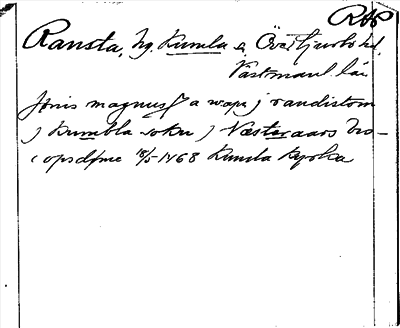 RAP
Ransta, hg. Kumla s., Övertjurbo hd,
Västmanl. län
Jönis magnuss a wapn j randistom
j Kumbla sokn j Västeraars bis-
copsdøme 18/5 1468 Kumla kyrka